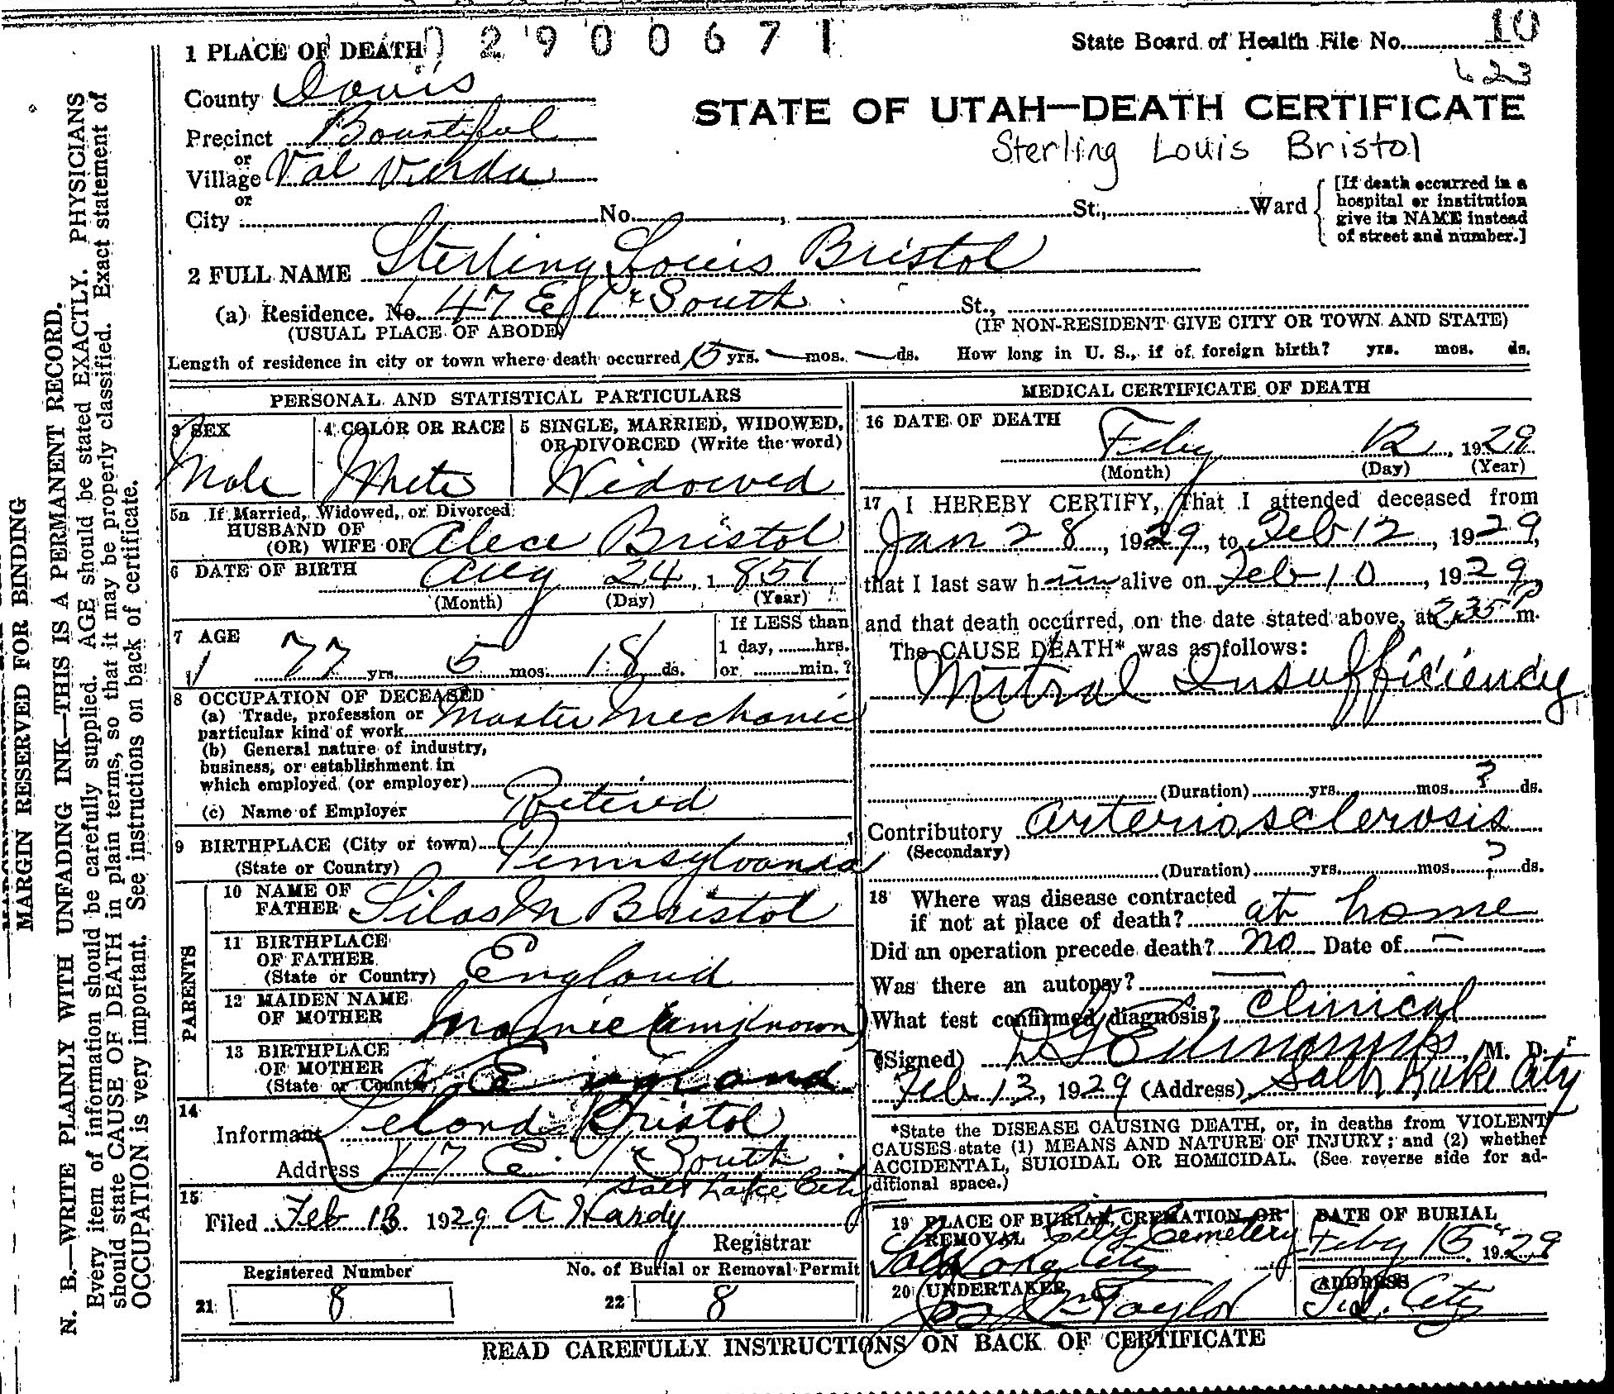 02900671
1 PLACE OF DEATH
State Board of Health File No. 10
623
County Davis
STATE OF UTAH—DEATH CERTIFICATE
Precinct Bountiful
Sterling Louis Bristol
or
Village Val Verda
or
City No. , St., Ward
[If death occurred in a
hospital or institution
give its NAME instead
of street and number.]
2 FULL NAME Sterling Louis Bristol
(a) Residence. No. 47 E South St.,
(USUAL PLACE OF ABODE) (IF NON-RESIDENT GIVE CITY OR TOWN AND STATE)
Length of residence in city or town where death occurred 15 yrs. — mos. — ds. How long in U. S., if of foreign birth? yrs. mos. ds.
PERSONAL AND STATISTICAL PARTICULARS
3 SEX
Male
4 COLOR OR RACE
White
5 SINGLE, MARRIED, WIDOWED,
OR DIVORCED (Write the word)
Widowed
5a If Married, Widowed, or Divorced
HUSBAND OF
(OR) WIFE OF Alece Bristol
6 DATE OF BIRTH Aug 24, 1851
(Month) (Day) (Year)
7 AGE
77 yrs. 5 mos. 18 ds.
If LESS than
1 day, hrs.
or min.?
8 OCCUPATION OF DECEASED
(a) Trade, profession or Master Mechanic
particular kind of work
(b) General nature of industry,
business, or establishment in
which employed (or employer)
(c) Name of Employer Retired
9 BIRTHPLACE (City or town)
(State or Country) Pennsylvania
PARENTS
10 NAME OF
FATHER Silas M Bristol
11 BIRTHPLACE
OF FATHER
(State or Country) England
12 MAIDEN NAME
OF MOTHER Mamie (unknown)
13 BIRTHPLACE
OF MOTHER
(State or Country) England
14
Informant Leland Bristol
Address 47 E. South
Salt Lake City
15
Filed Feb 13 1929 A Hardy
Registrar
Registered Number
21 8
No. of Burial or Removal Permit
22 8
MEDICAL CERTIFICATE OF DEATH
16 DATE OF DEATH
Feby 12, 1929
(Month) (Day) (Year)
17 I HEREBY CERTIFY, That I attended deceased from
Jan 28, 1929, to Feb 12, 1929,
that I last saw him alive on Feb 10, 1929,
and that death occurred, on the date stated above, at 2.35 P m.
The CAUSE DEATH* was as follows:
Mitral Insufficiency
(Duration) yrs. mos. ? ds.
Contributory arteriosclerosis
(Secondary)
(Duration) yrs. mos. ? ds.
18 Where was disease contracted
if not at place of death? at home
Did an operation precede death? no Date of —
Was there an autopsy? —
What test confirmed diagnosis? Clinical
(Signed) Edmunds, M. D.
Feb 13, 1929 (Address) Salt Lake City
*State the DISEASE CAUSING DEATH, or, in deaths from VIOLENT
CAUSES state (1) MEANS AND NATURE OF INJURY; and (2) whether
ACCIDENTAL, SUICIDAL OR HOMICIDAL. (See reverse side for ad-
ditional space.)
19 PLACE OF BURIAL, CREMATION OR
REMOVAL City Cemetery
Salt Lake City
DATE OF BURIAL
Feby 15 1929
20 UNDERTAKER
Taylor
ADDRESS
City
READ CAREFULLY INSTRUCTIONS ON BACK OF CERTIFICATE
MARGIN RESERVED FOR BINDING
N. B.—WRITE PLAINLY WITH UNFADING INK—THIS IS A PERMANENT RECORD.
Every item of information should be carefully supplied. AGE should be stated EXACTLY. PHYSICIANS
should state CAUSE OF DEATH in plain terms, so that it may be properly classified. Exact statement of
OCCUPATION is very important. See instructions on back of certificate.